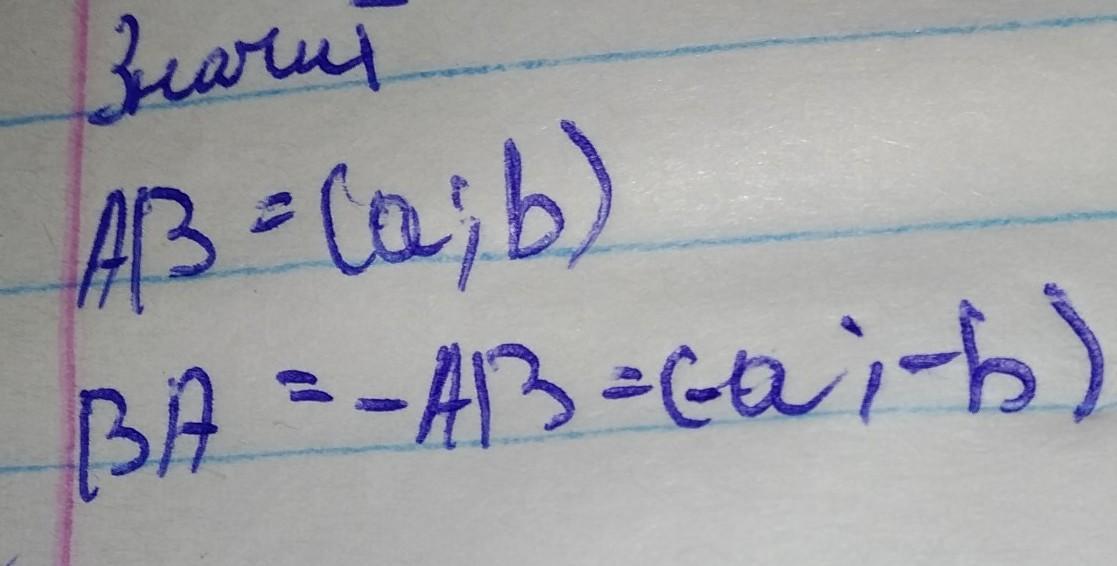 Значит
AB = (a;b)
BA = -AB = (-a;-b)